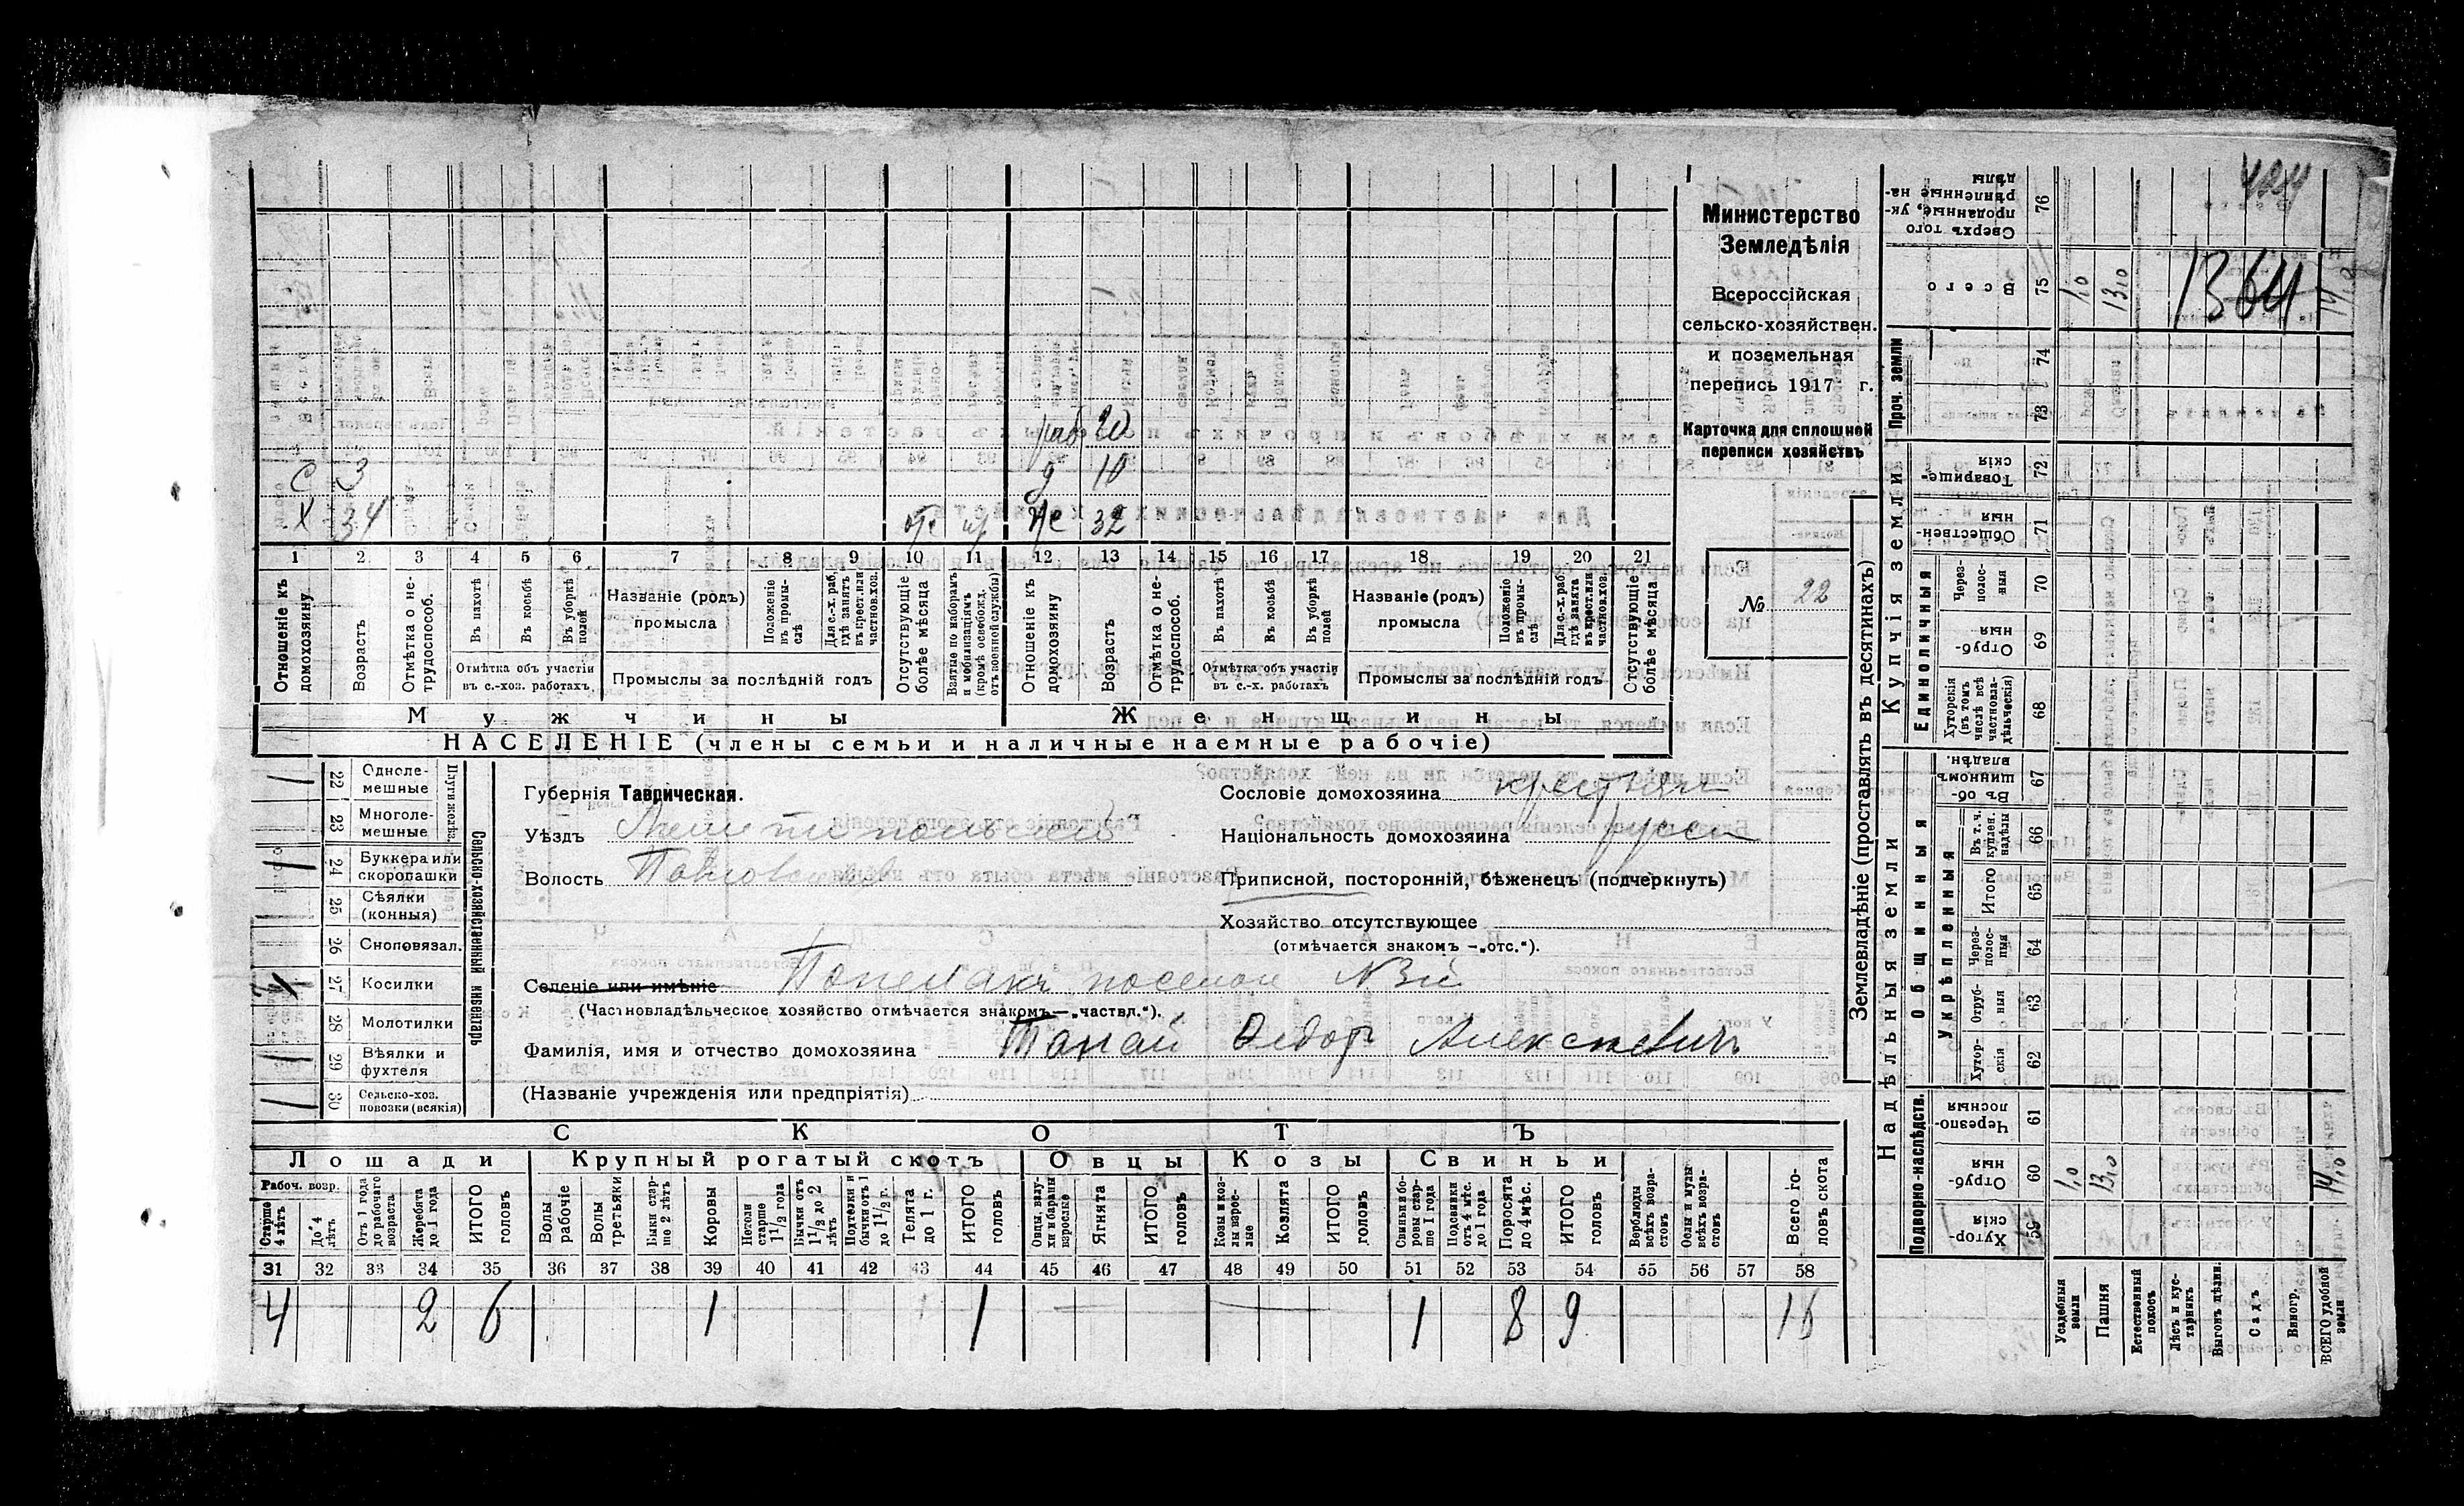 Министерство
Земледѣлія
Всероссійская
сельско-хозяйствен.
и поземельная
перепись 1917 г.
Карточка для сплошной
переписи хозяйствъ
№ 22
раб 20
С 3 д 10
Х 34 же 32
1 2 3 4 5 6 7 8 9 10 11 12 13 14 15 16 17 18 19 20 21
Отношеніе къ домохозяину.
Возрастъ
Отмѣтка о не-трудоспособ.
Въ пахотѣ
Въ косьбѣ
Въ уборкѣ полей
Отмѣтка объ участіи въ с.-хоз. работахъ.
Названіе (родъ) промысла
Положеніе въ промы-слѣ
Для с.-х. раб. гдѣ занятъ въ крест. или частнов. хоз.
Промыслы за послѣдній годъ
Отсутствующіе болѣе мѣсяца
Взятые по наборамъ и мобилизаціямъ (кромѣ освобожд. отъ военной службы)
Отношеніе къ домохозяину
Возрастъ
Отмѣтка о не-трудоспособ.
Въ пахотѣ
Въ косьбѣ
Въ уборкѣ полей
Отмѣтка объ участіи въ с.-х. работахъ
Названіе (родъ) промысла
Положеніе въ промы-слѣ
Для с.-х. раб. гдѣ занята въ крест. или частнов. хоз.
Промыслы за послѣдній годъ
Отсутствующіе болѣе мѣсяца
Мужчины Женщины
НАСЕЛЕНІЕ (члены семьи и наличные наемные рабочіе)
Сельско-хозяйственный инвентарь
Плуги желѣз.
22 Одноле-мешные 1
23 Многоле-мешные
24 Буккера или скоропашки 1
25 Сѣялки (конныя)
26 Сноповязал.
27 Косилки
28 Молотилки
29 Вѣялки и фухтеля 1
30 Сельско-хоз. повозки (всякія) 1
Губернія Таврическая.
Уѣздъ Мелитопольский
Волость
Сословіе домохозяина крестьян
Національность домохозяина русск
Приписной, посторонній, бѣженецъ (подчеркнуть)
Хозяйство отсутствующее
(отмѣчается знакомъ —„отс.“).
Селеніе или имѣніе поселок №3й
(Частновладѣльческое хозяйство отмѣчается знакомъ—„частвл.“).
Фамилія, имя и отчество домохозяина Федор Алексеевич
(Названіе учрежденія или предпріятія)
СКОТЪ
Лошади Крупный рогатый скотъ Овцы Козы Свиньи
Рабоч. возр.
Старше 4 лѣтъ
До 4 лѣтъ
Отъ 1 года до рабочаго возраста
Жеребята до 1 года
ИТОГО головъ
Волы рабочіе
Волы третьяки
Быки стар-ше 2 лѣтъ
Коровы
Нетели старше 1 1/2 года
Бычки отъ 1 1/2 до 2 лѣтъ
Подтелки и бычки отъ 1 до 1 1/2 г.
Телята до 1 г.
ИТОГО головъ
Овцы, валу-хи и бараны взрослые
Ягнята
ИТОГО головъ
Козы и коз-лы взрос-лые
Козлята
ИТОГО головъ
Свиньи бо-ровы стар-ше 1 года
Подсвинки отъ 4 мѣс. до 1 года
Поросята до 4 мѣс.
ИТОГО головъ
Верблюды всѣхъ возра-стовъ
Ослы и мулы всѣхъ возра-стовъ
Всего го-ловъ скота
31 32 33 34 35 36 37 38 39 40 41 42 43 44 45 46 47 48 49 50 51 52 53 54 55 56 57 58
4 2 6 1 1 1 8 9 16
Землевладѣніе (проставлять въ десятинахъ)
Надѣльныя земли
Купчія земли
Проч. земли
Подворно-наслѣдств.
Общинныя
Укрѣпленныя
Единоличныя
Сверхъ того проданные, ук-рѣпленные на-дѣлы 76
Всего 75 1,0 13,0 14,0
74
73
Товарище-скія 72
Обществен-ныя 71
Через-полос-ныя 70
Отруб-ныя 69
Хуторскія (въ томъ числѣ всѣ частновла-дѣльческія) 68
Въ об-щинномъ владѣн. 67
Въ т. ч. куплен. надѣлы 66
Итого 65
Через-полос-ныя 64
Отруб-ныя 63
Хутор-скія 62
Черезпо-лосныя 61
Отруб-ныя 60 1,0 13,0 14,0
Хутор-скія 59
Усадебныя земли
Пашня
Естественный покосъ
Лѣсъ и кус-тарникъ
Выгонъ цѣлин.
Садъ
Виногр.
ВСЕГО удобной земли
1364